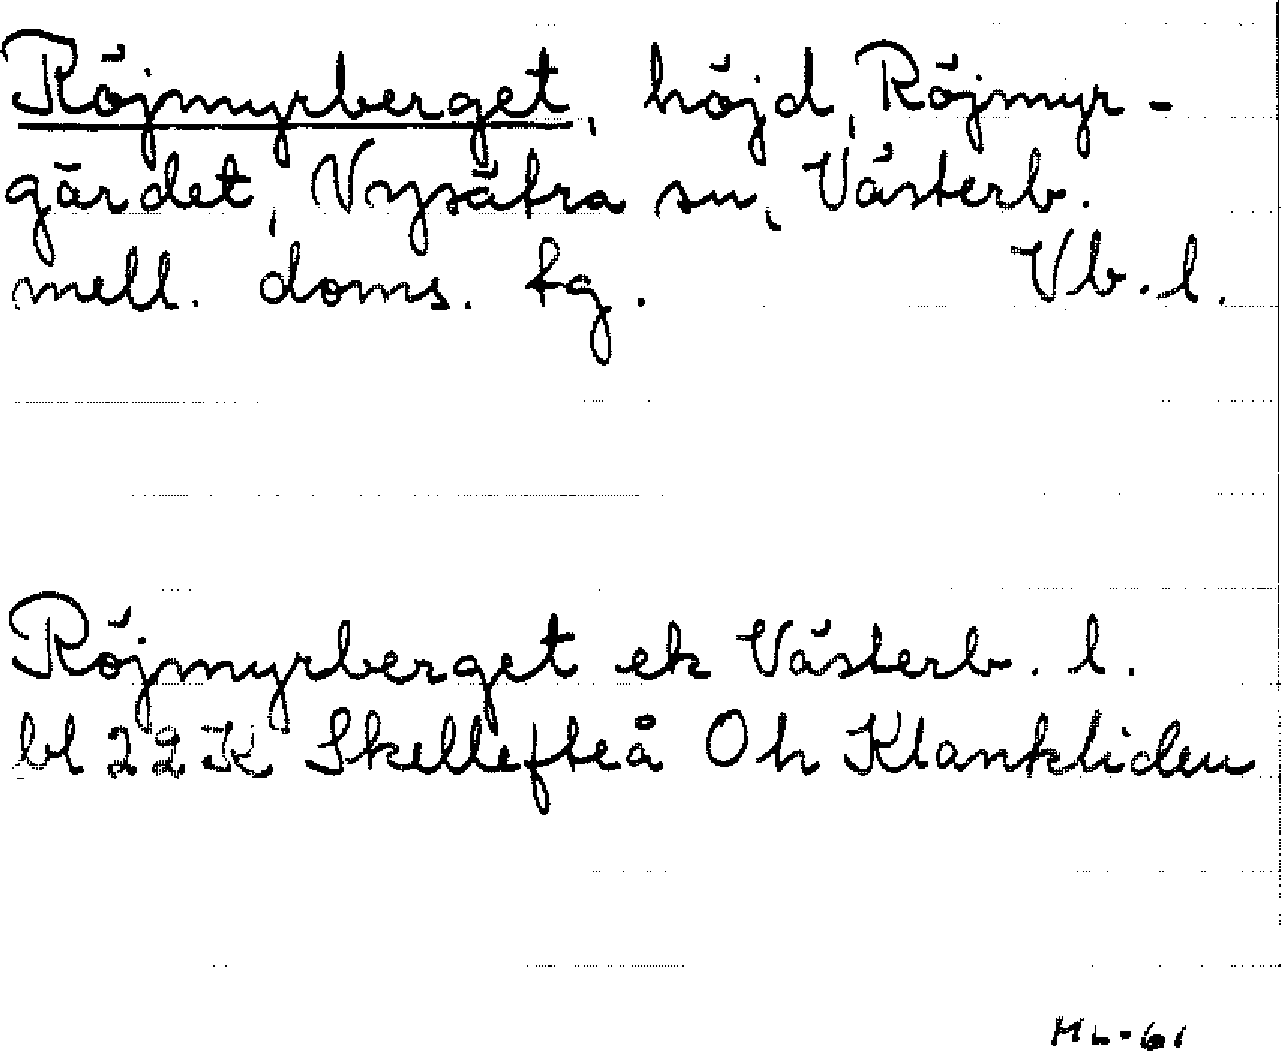 Röjmyrberget, höjd, Röjmyr-
gärdet, Nysätra sn, Västerb.
mell. doms. tg. Vb. l.
Röjmyrberget ek Västerb. l.
bl 22K Skellefteå Oh Klankliden
ML-61